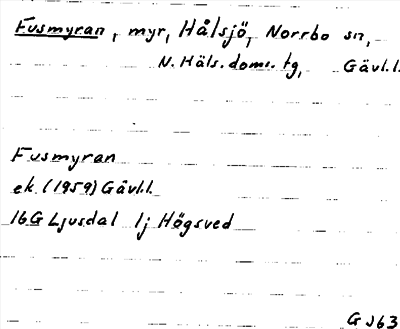 Fusmyran, myr, Hålsjö, Norrbo sn,
N. Häls. doms. tg, Gävl.l.
Fusmyran
ek. (1959) Gävl.l.
16G Ljusdal 1j Högsved
G J63